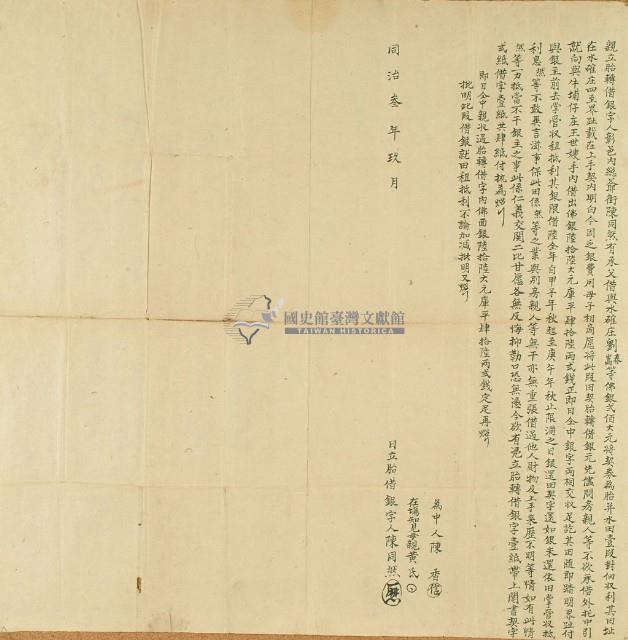 親立胎轉借銀字人彰邑內總爺街陳同然有承父借與水確庄劉春嵩等佛銀弍佰大元將契券為胎并水田壹段對佃収利其田址
在水確庄四至界趾載在上手契內明白今因乏銀費用母子相商愿將此段田契胎轉借銀元先儘問房親人等不欲承借外托中引
就向與牛埔仔庄王世 手內借出佛銀陸拾陸大元庫平肆拾陸兩弍錢正即日仝中銀字兩相交収足訖其田隨即踏明界趾付
與銀主前去掌管収租抵利其銀限借陸全年自甲子年秋起至庚午年秋止限滿之日銀還田契字還如銀未還依旧掌管収抵
利息然等不敢異言滋事保此田係然等之業與別房親人等無干亦無重張借過他人財物及上手來歷不明等情如有此情
然等一力抵當不干銀主之事此係仁義交關二比甘愿各無反悔抑勒口恐無憑今欲有凭立胎轉借銀字壹紙帶上鬮書契字
弍紙借字壹紙共肆紙付執為炤
即日仝中親収過胎轉借字內佛面銀陸拾陸大元庫平肆拾陸兩弍錢定足再炤
批明此段借銀就田租抵利不論加減批明又炤
同治叁年玖月
為中人陳香
在場知見母親黃氏
日立胎借銀字人陳同然
國史館臺灣文獻館
TAIWAN HISTORICA